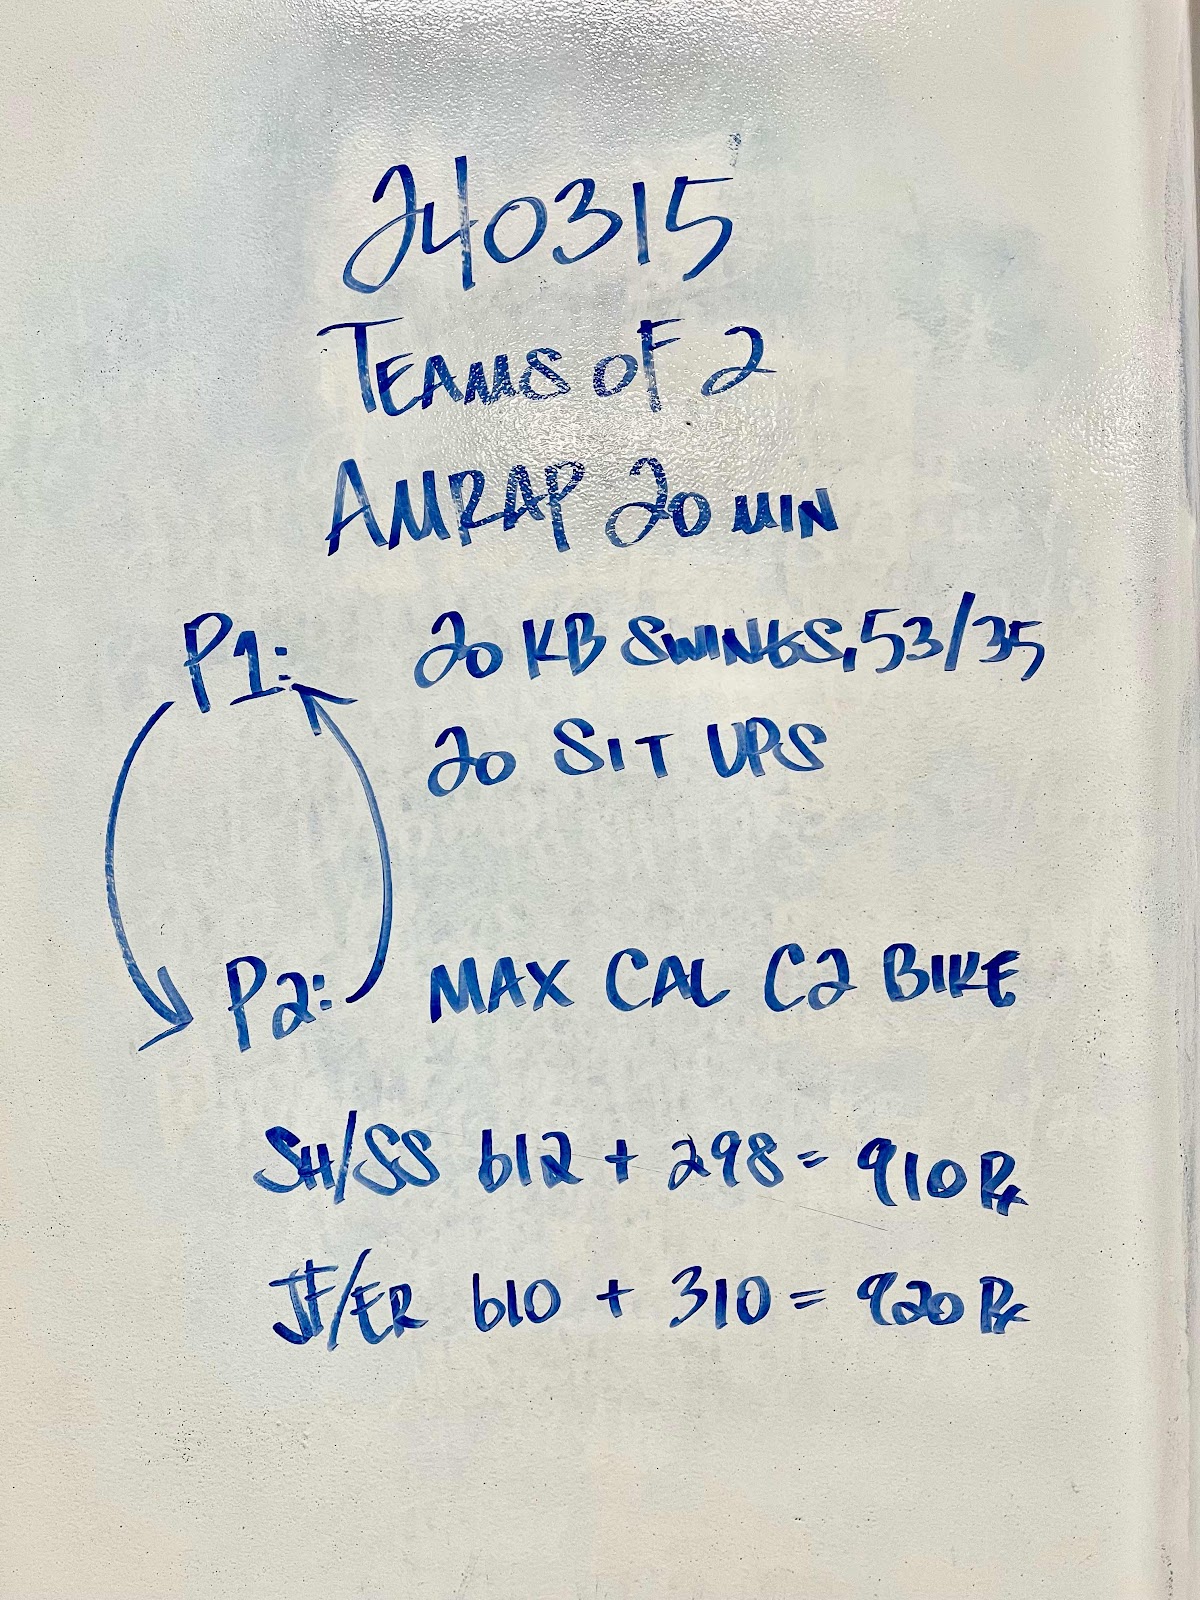 240315
TEAMS OF 2
AMRAP 20 MIN
P1: 20 KB SWINGS, 53/35
20 SIT UPS
P2: MAX CAL C2 BIKE
SH/SS 612 + 298 = 910 Rx
JF/ER 610 + 310 = 920 Rx